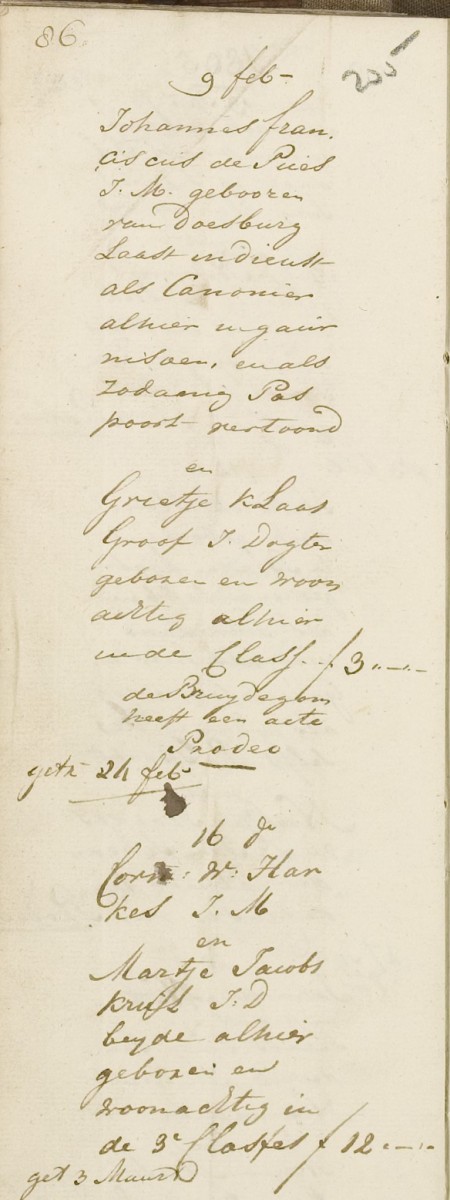 86.
205
9 feb-
Johannes fran,
ciscus de Pues
J. M. gebooren
van Doesburg
Laast indienst
als Canonier
alhier in gaur
nisoen, en als
zodanig Pas
poort vertoond
en
Grietje Klaas
Groof J. Dogter
geboren en woon
achtig alhier
in de Class. - f 3 „-„-
de Bruydegom
heeft een acte
Prodeo
getr 24 feb
16 do
Corn: W: Har
kes J. M
en
Martje Jacobs
Kruil J: D
beyde alhier
geboren en
woonachtig in
de 3e Classes f 12 „-„-
get 3 Maart